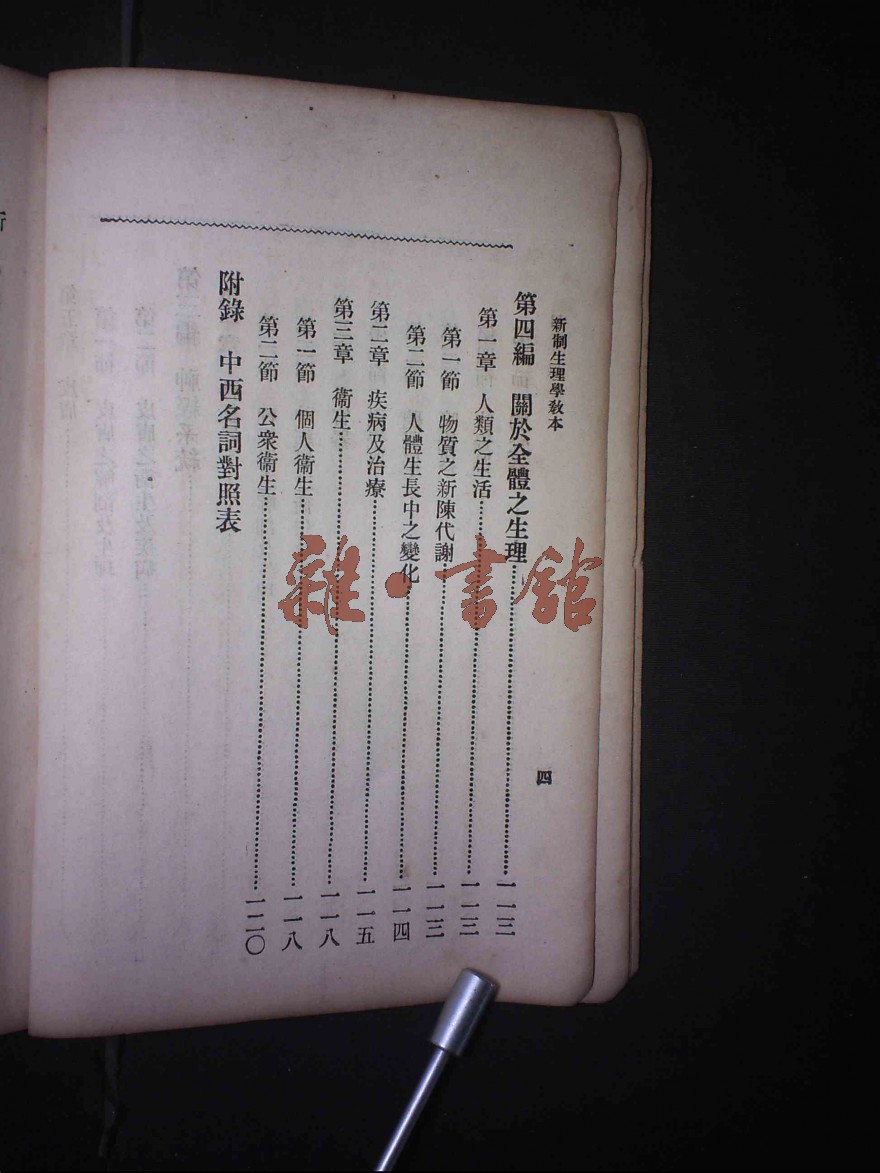 新制生理學教本
四
第四編　關於全體之生理……一一三
第一章　人類之生活……一一三
第一節　物質之新陳代謝……一一三
第二節　人體生長中之變化……一一四
第二章　疾病及治療……一一五
第三章　衞生……一一八
第一節　個人衞生……一一八
第二節　公衆衞生……一二〇
附錄　中西名詞對照表
雜·書館